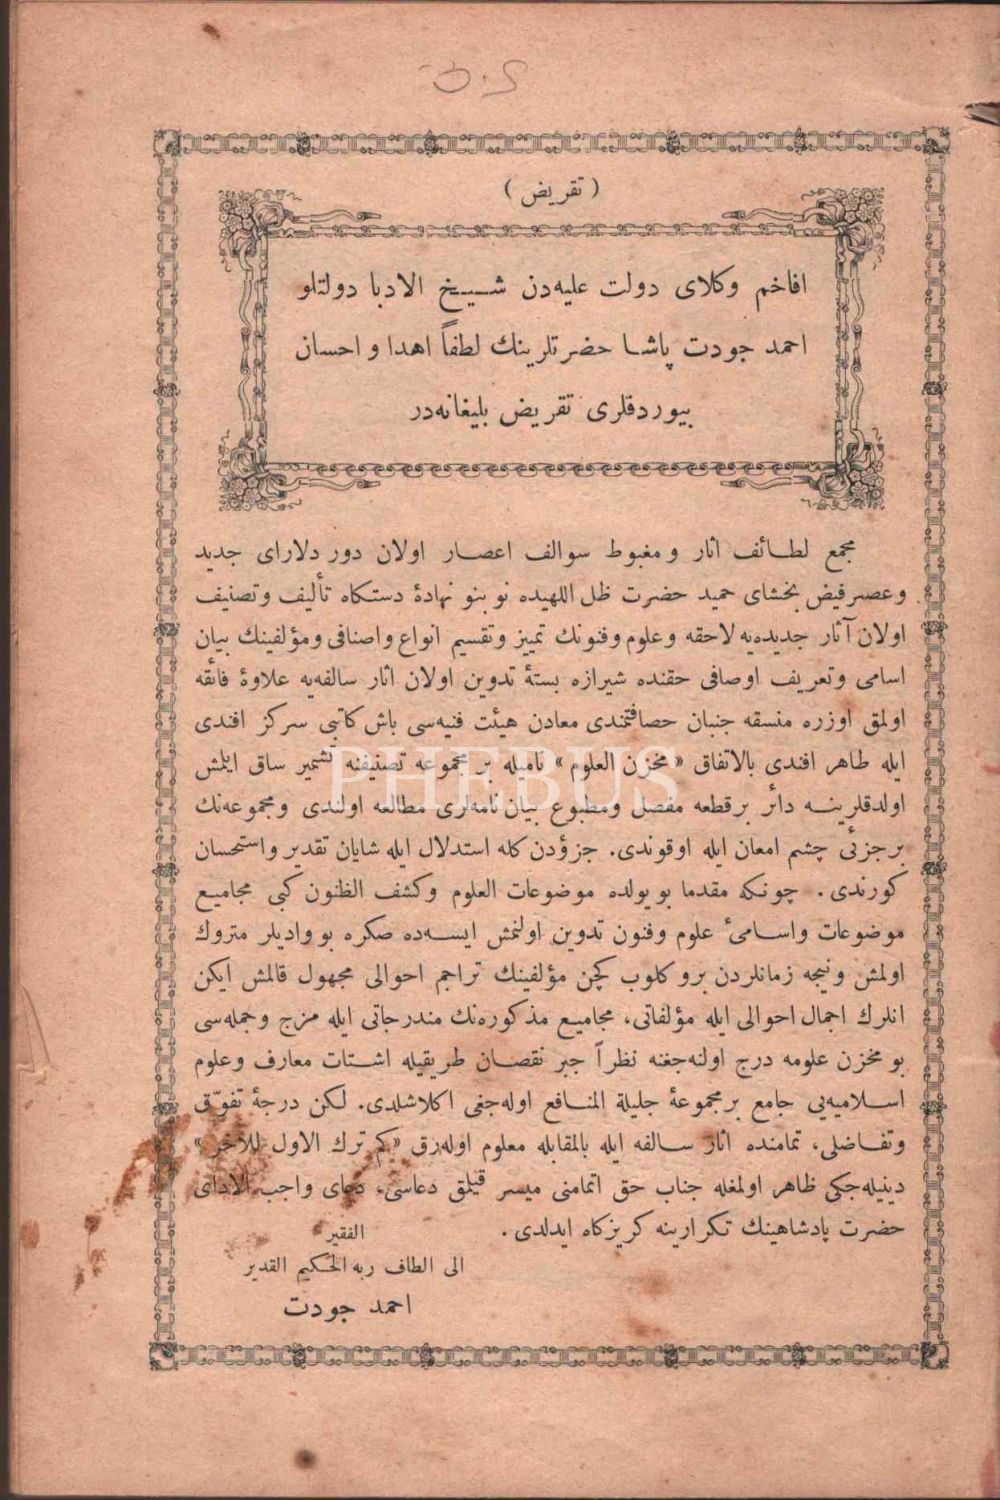 ( تقریض )
افاخم وكلای دولت علیه‌دن شیخ الادبا دولتلو
احمد جودت پاشا حضرتلرینك لطفاً اهدا و احسان
بیوردقلری تقریض بلیغانه‌در
مجمع لطائف اثار ومغبوط سوالف اعصار اولان دور دلارای جدید
وعصر فیض بخشای حمید حضرت ظل اللهیده نو بنو نهادهٔ دستكاه تألیف وتصنیف
اولان آثار جدیده‌یه لاحقه وعلوم وفنونك تمییز وتقسیم انواع واصنافی ومؤلفینك بیان
اسامی وتعریف اوصافی حقنده شیرازه بستهٔ تدوین اولان اثار سالفه‌یه علاوهٔ فائقه
اولمق اوزره منسقه جنبان حصافتمندی معادن هیئت فنیه‌سی باش كاتبی سركز افندی
ایله طاهر افندی بالاتفاق «مخزن العلوم» نامیله بر مجموعه تصنیفنه تشمیر ساق ایلمش
اولدقلرینه دائر برقطعه مفصل ومطبوع بیان نامه‌لری مطالعه اولندی ومجموعه‌نك
برجزئی چشم امعان ایله اوقوندی. جزؤدن كله استدلال ایله شایان تقدیر واستحسان
كورندی. چونكه مقدما بویولده موضوعات العلوم وكشف الظنون كبی مجامیع
موضوعات واسامیٔ علوم وفنون تدوین اولنمش ایسه‌ده صكره بووادیلر متروك
اولمش ونیجه زمانلردن برو كلوب كچن مؤلفینك تراجم احوالی مجهول قالمش ایكن
انلرك اجمال احوالی ایله مؤلفاتی، مجامیع مذكوره‌نك مندرجاتی ایله مزج وجمله‌سی
بو مخزن علومه درج اوله‌جغنه نظراً جبر نقصان طریقیله اشتات معارف وعلوم
اسلامیه‌یی جامع برمجموعهٔ جلیلة المنافع اوله‌جغی اكلاشلدی. لكن درجهٔ تفوّق
وتفاضلی، تمامنده اثار سالفه ایله بالمقابله معلوم اوله‌رق «كم ترك الاول للآخر»
دینیله‌جكی ظاهر اولمغله جناب حق اتمامنی میسر قیلمق دعاسی، دعای واجب الادای
حضرت پادشاهینك تكرارینه كریزكاه ایدلدی.
الفقیر
الی الطاف ربه الحكیم القدیر
احمد جودت
PHEBUS